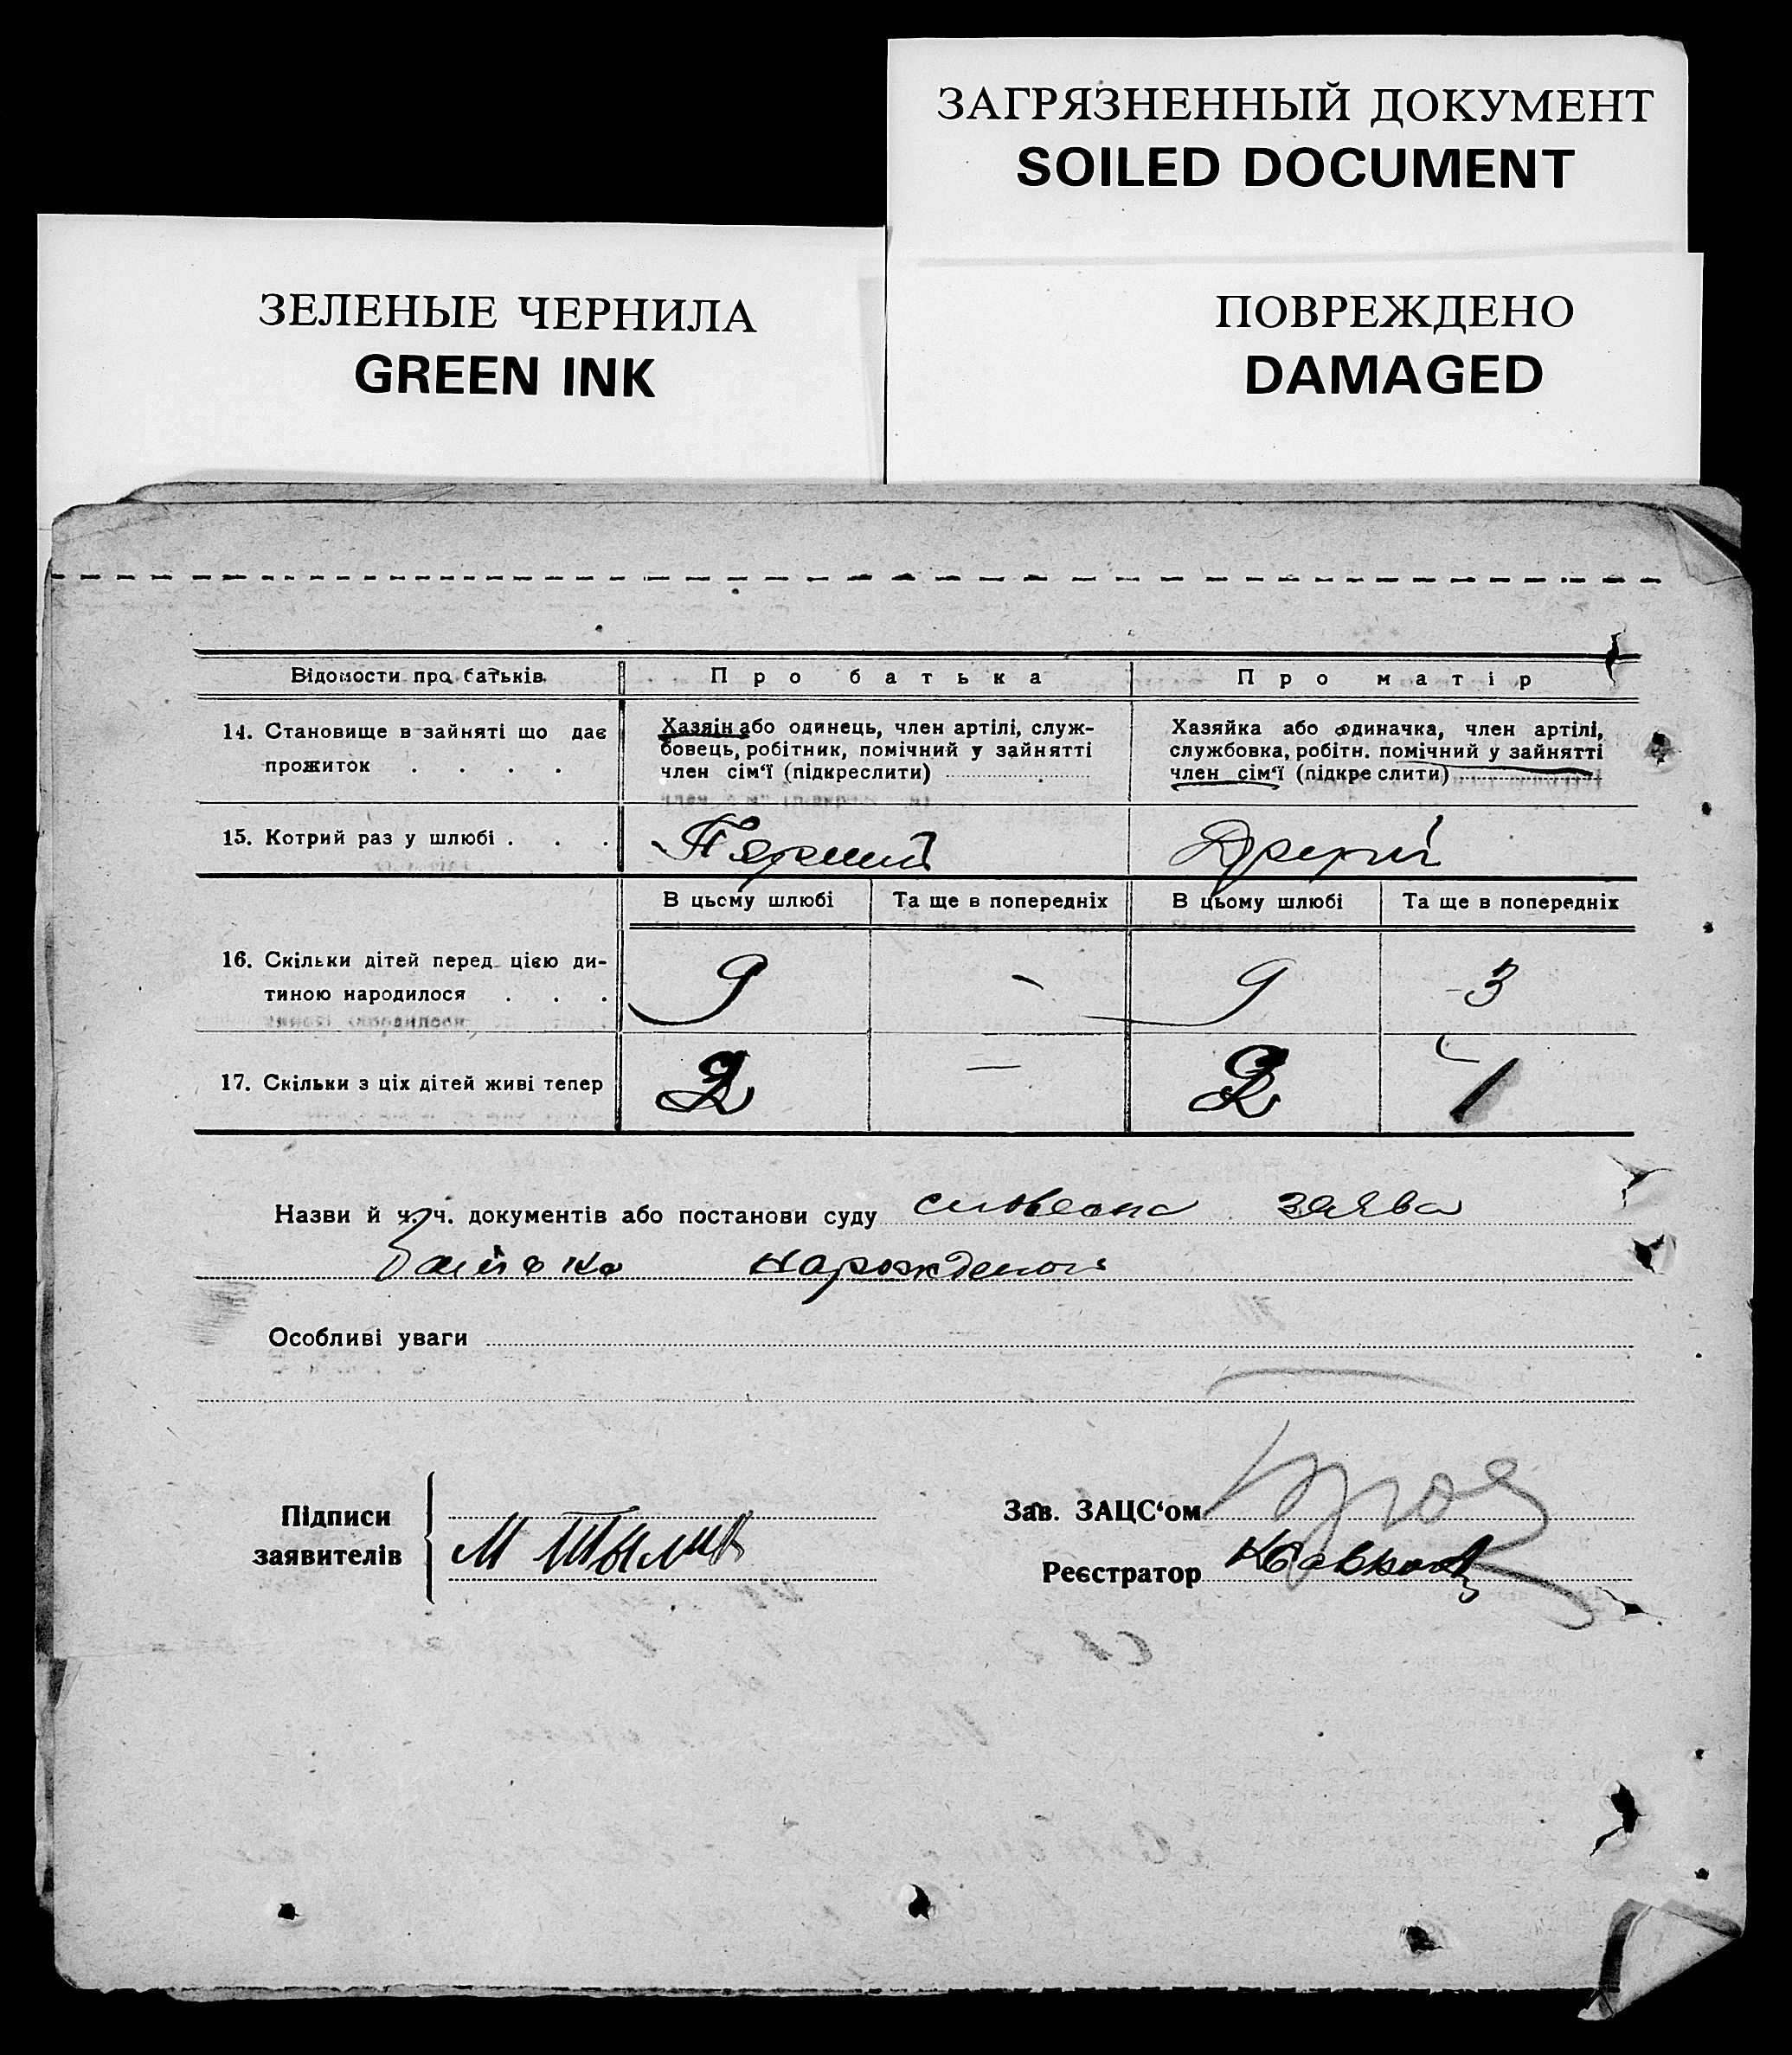 ЗАГРЯЗНЕННЫЙ ДОКУМЕНТ
SOILED DOCUMENT
ЗЕЛЕНЫЕ ЧЕРНИЛА
GREEN INK
ПОВРЕЖДЕНО
DAMAGED
Відомости про батьків. Про батька Про матір
14. Становище в зайняті що дає прожиток . . . .
Хазяін або одинець, член артілі, служ-
бовець, робітник, помічний у зайнятті
член сім'ї (підкреслити)
Хазяйка або одиначка, член артілі,
службовка, робітн. помічний у зайнятті
член сім'ї (підкреслити)
15. Котрий раз у шлюбі . . . Перший Другий
В цьому шлюбі Та ще в попередніх В цьому шлюбі Та ще в попередніх
16. Скільки дітей перед цією ди-
тиною народилося . . . 9 - 9 3
17. Скільки з ціх дітей живі тепер 2 — 2 1
Назви й ч. ч. документів або постанови суду словесна заява
батька
Особливі уваги
Підписи
заявителів
М
Зав. ЗАЦС'ом
Реєстратор